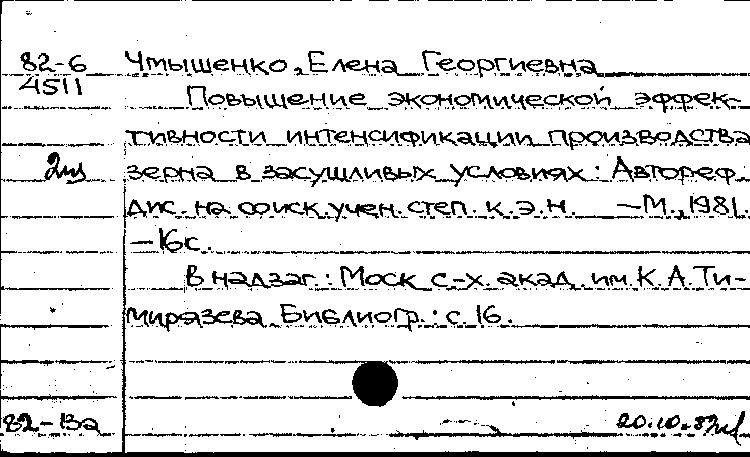 82-6 Чмышенко, Елена Георгиевна
4511
Повышение экономической эффек-
тивности интенсификации производства
2 зерна в засушливых условиях: Автореф.
дис. на соиск. учен. степ. к.э.н. —М., 1981.
—16с.
В надзаг.: Моск. с-х. акад. им. К.А.Ти-
мирязева. Библиогр.: с 16.
82-Ва 20.10.82